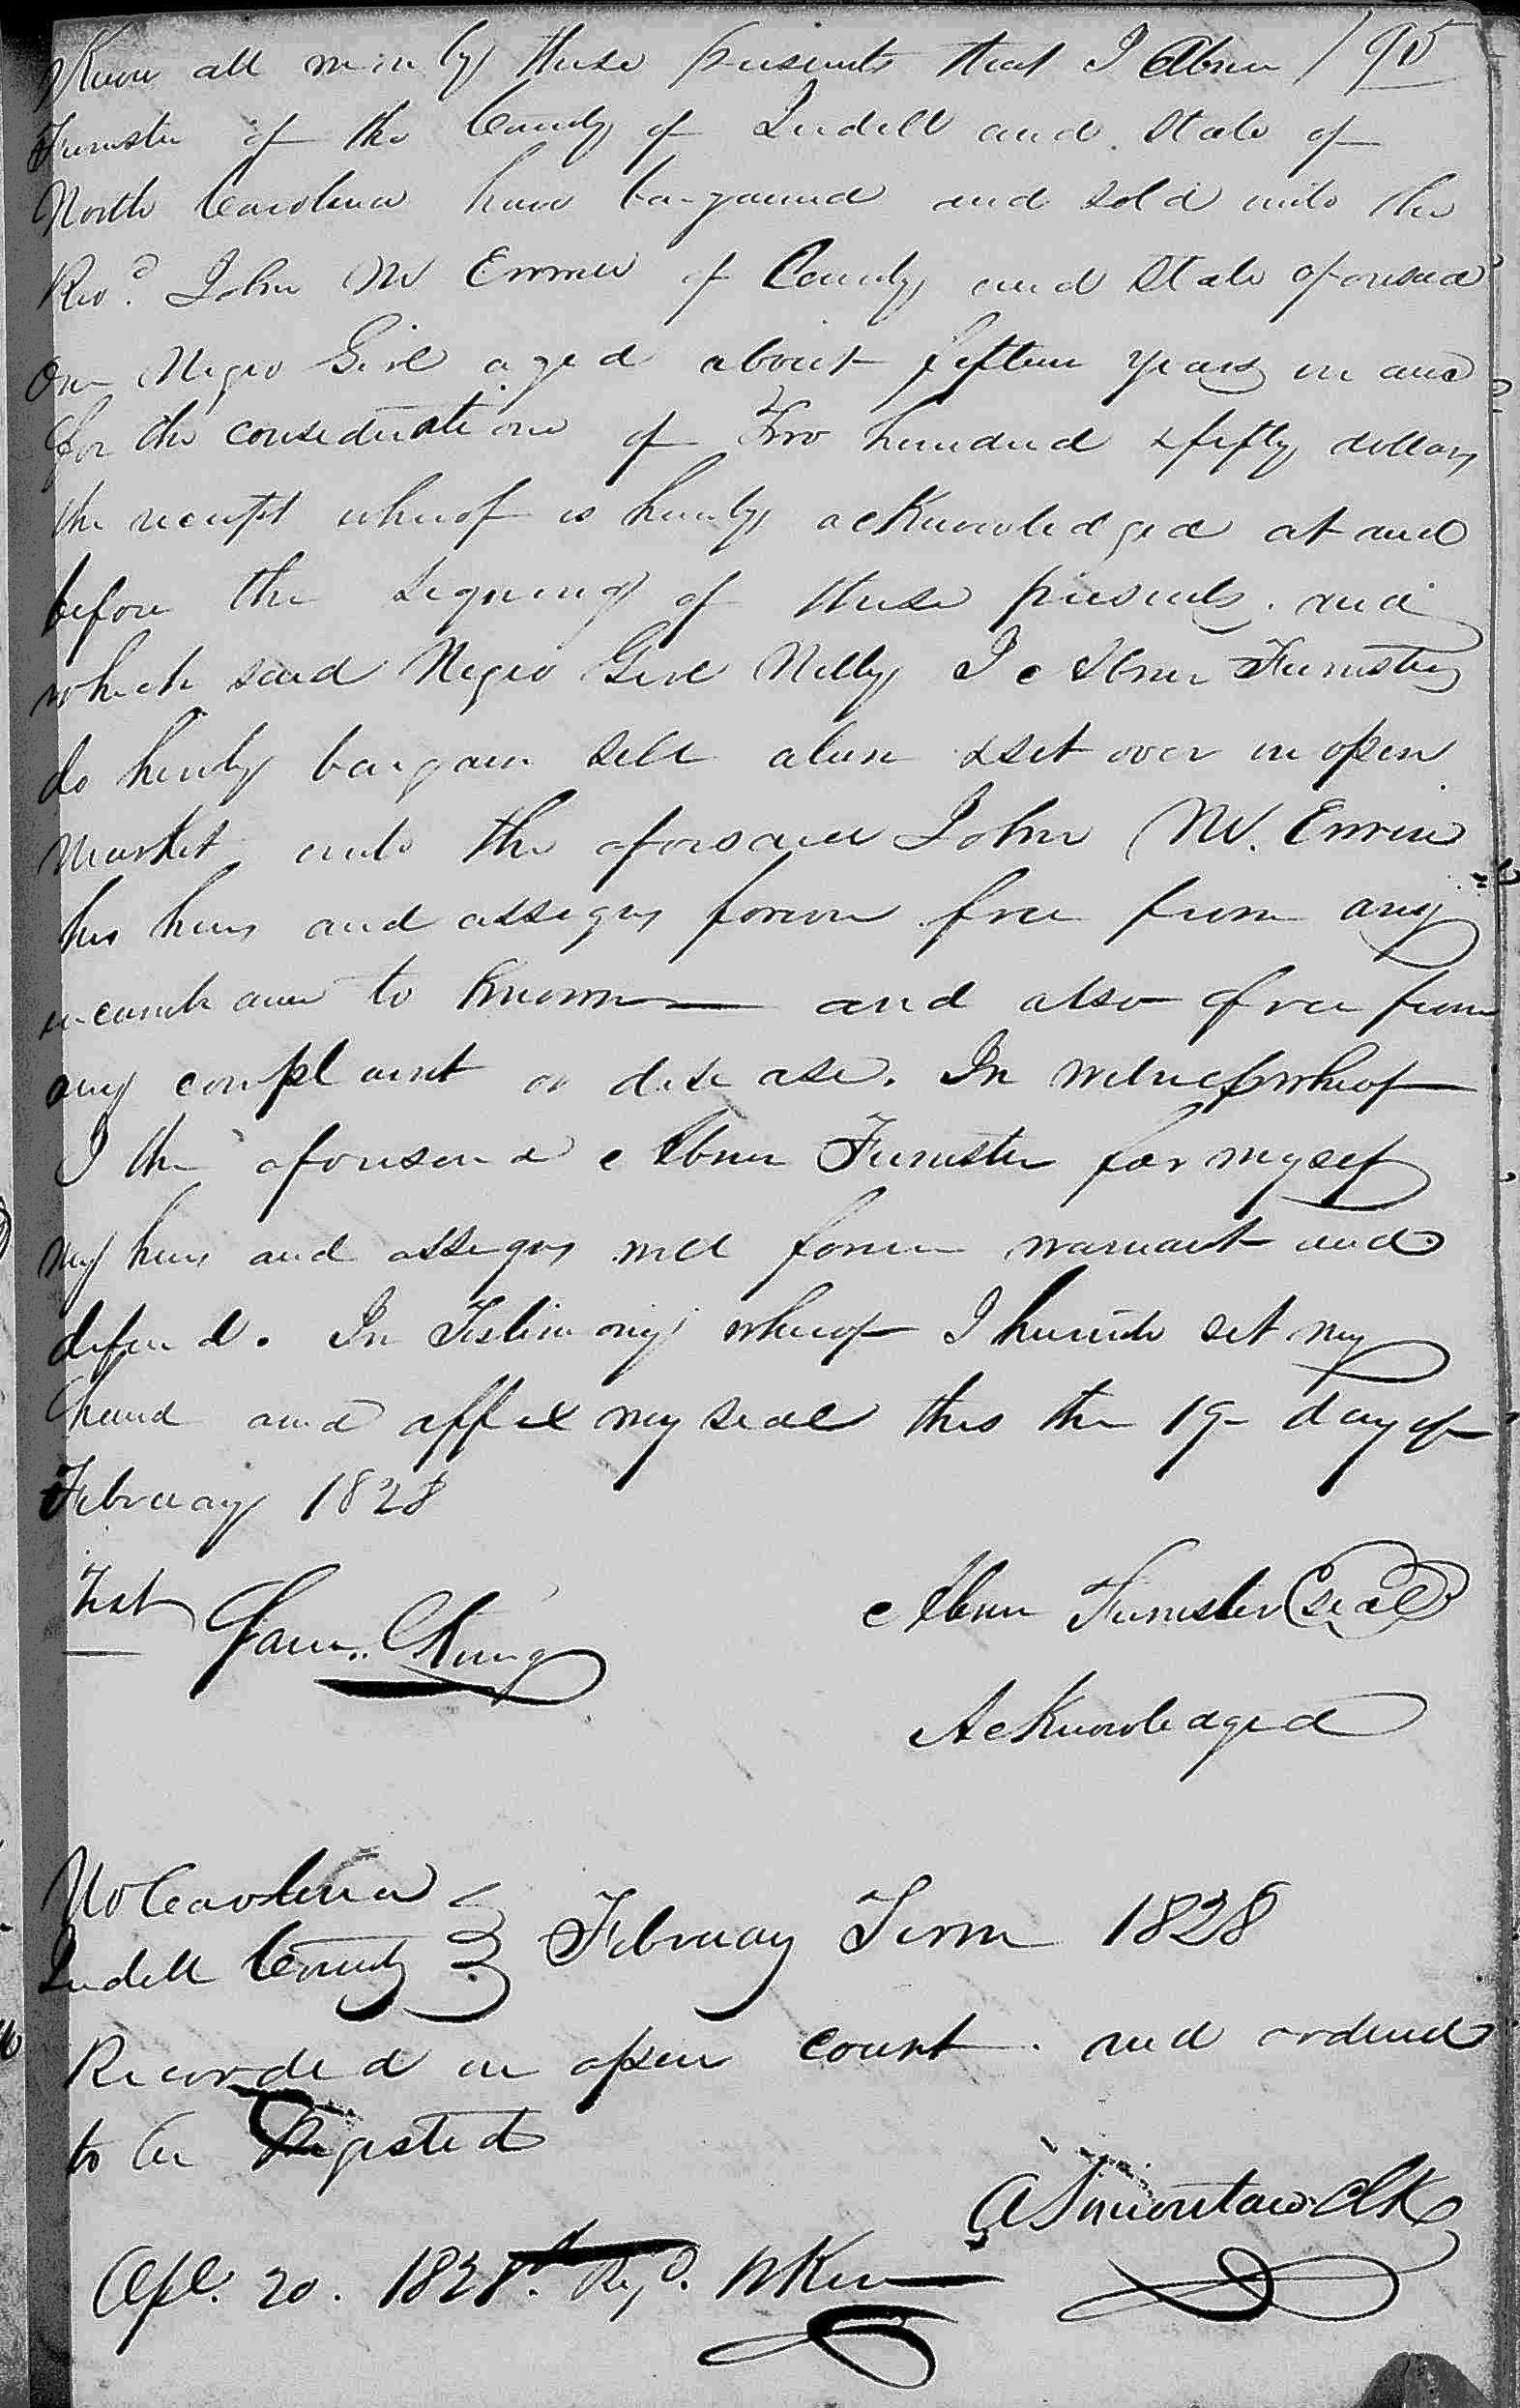 Know all men by these presents that I Abner 195
Feimster of the County of Iredell and State of
North Carolina have bargained and sold unto the
Revd. John M Erwin of County and State aforesaid
One Negro Girl aged about fifteen years in and
for the consideration of Two hundred & fifty dollars
the receipt whereof is hereby acknowledged at and
before the signing of these presents. and
which said Negro Girl Nelly I Abner Feimster
do hereby bargain sell alien & set over in open
market unto the aforesaid John M. Erwin
his heirs and assigns forever free from any
incumbrance to known and also free from
any complaint or disease. In witness whereof
I the aforesaid Abner Feimster for myself
my heirs and assigns will forever warrant and
defend. In Testimony whereof I hereunto set my
hand and affix my seal this the 19 day of
February 1828
Test Abner Feimster (seal)
King
Acknowledged
No Carolina
Iredell County } February Term 1828
Recorded in open court. and ordered
to be Registed
A Simonton Clk
Apl. 20. 1828. Regd.